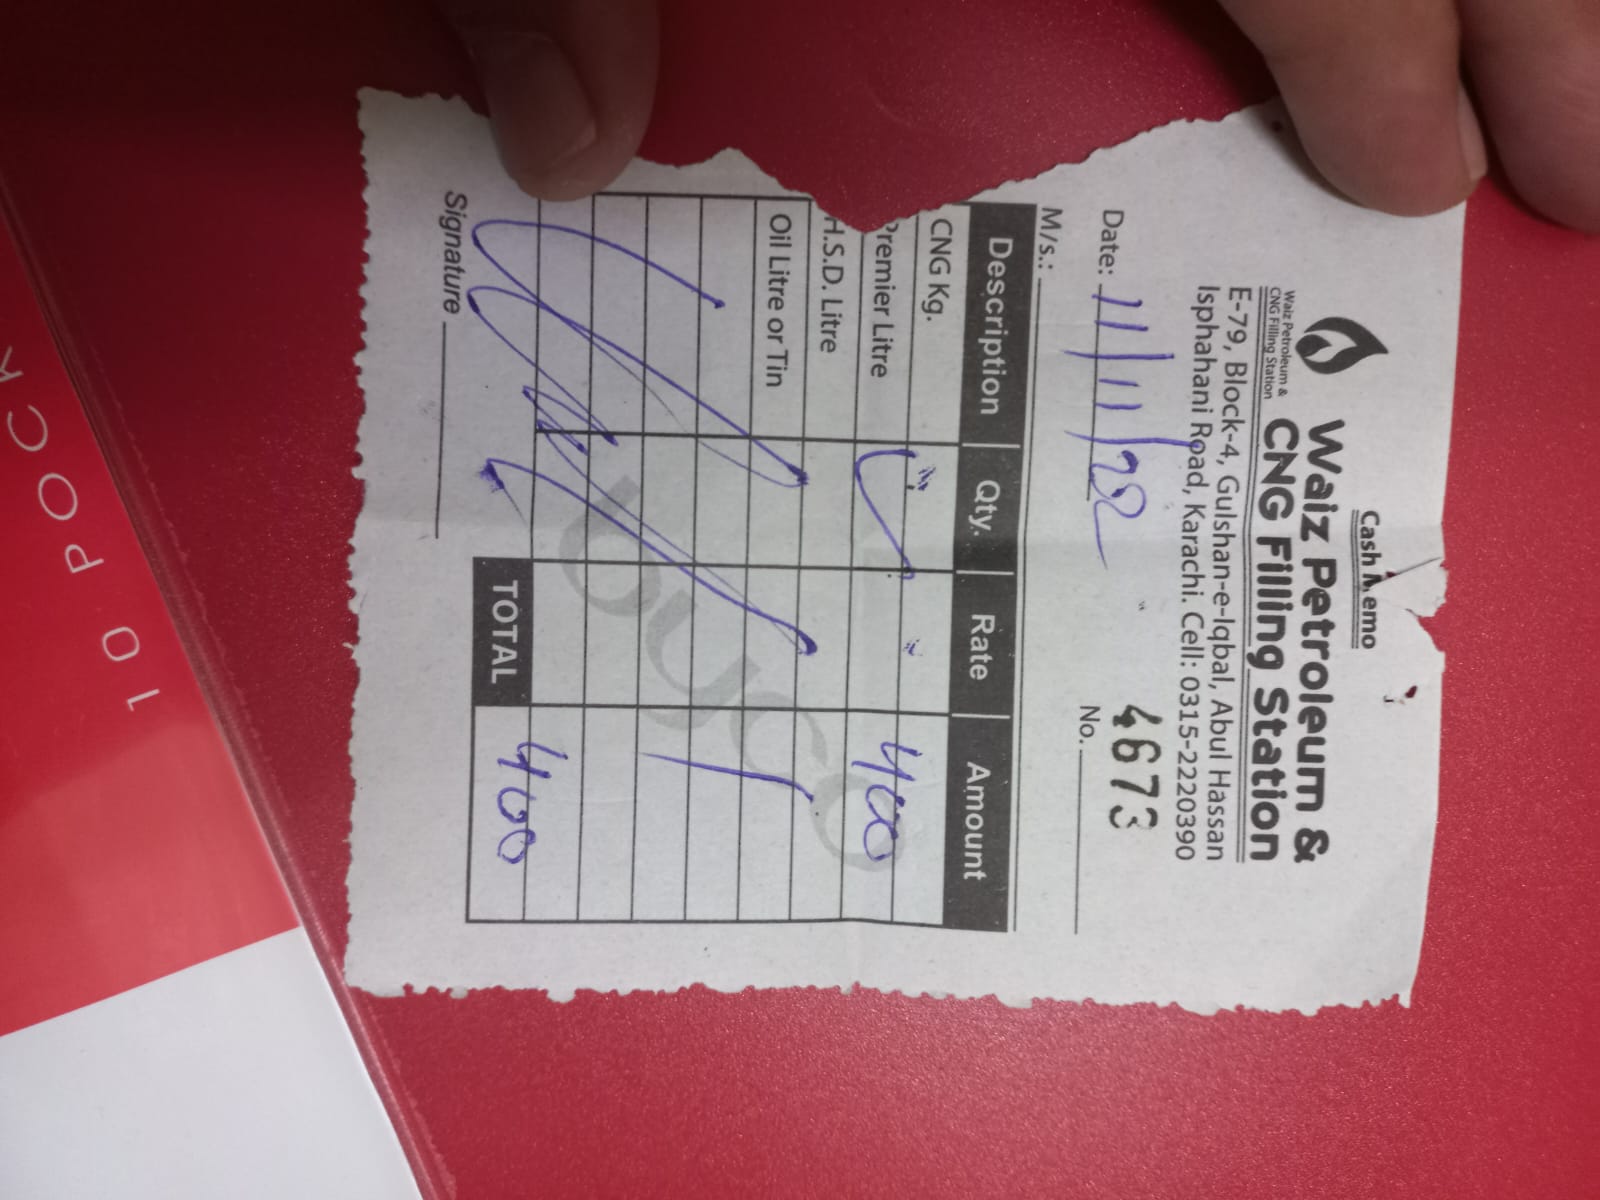 Cash Memo
Waiz Petroleum &
CNG Filling Station
Waiz Petroleum &
CNG Filling Station
E-79, Block-4, Gulshan-e-Iqbal, Abul Hassan
Isphahani Road, Karachi. Cell: 0315-2220390
4673
Date: 11/11/22 No.
M/s.:
Description Qty. Rate Amount
CNG Kg.
Premier Litre 400
H.S.D. Litre
Oil Litre or Tin
byco
TOTAL 400
Signature
10 POCK